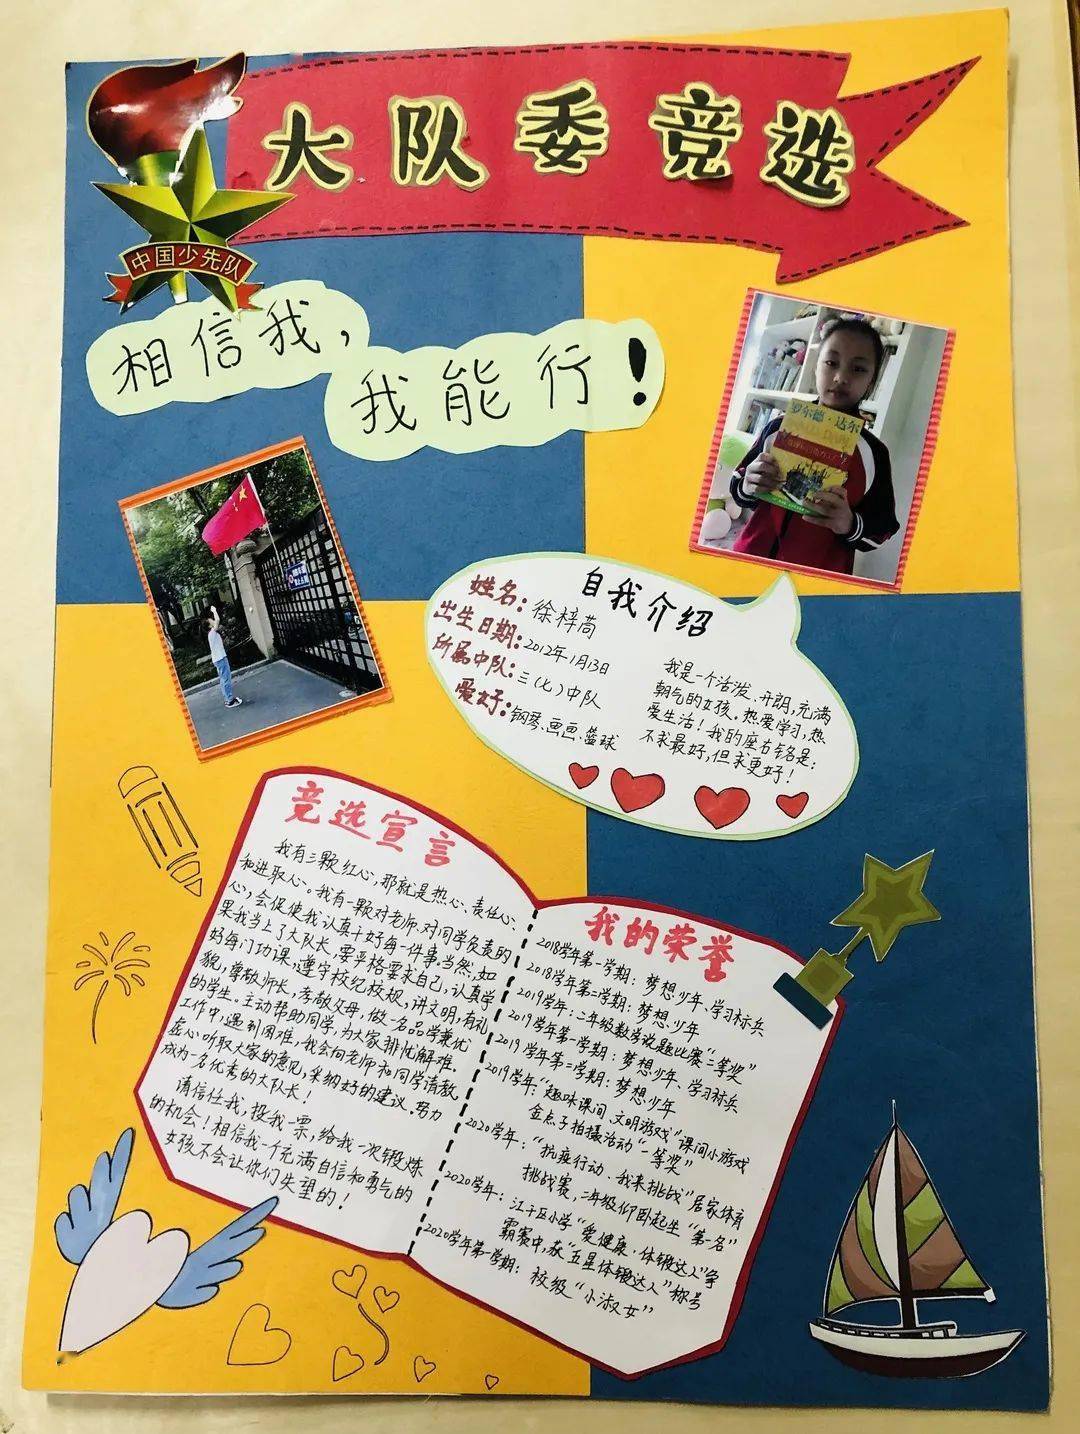 大队委竞选
中国少先队
相信我，
我能行！
罗尔德·达尔
自我介绍
姓名：徐梓茼
出生日期：2012年1月13日
所属中队：三（七）中队
爱好：钢琴、画画、篮球
我是一个活泼、开朗，充满
朝气的女孩。热爱学习，热
爱生活！我的座右铭是：
不求最好，但求更好！
竞选宣言
我有三颗红心，那就是热心、责任心、
和进取心。我有一颗对老师、对同学负责的
心，会促使我认真干好每一件事。当然，如
果我当上了大队长，要严格要求自己，认真学
好每门功课，遵守校纪校规，讲文明，有礼
貌，尊敬师长，孝敬父母，做一名品学兼优
的学生。主动帮助同学，为大家排忧解难。
工作中，遇到困难，我会向老师和同学请教，
在心听取大家的意见，采纳好的建议。努力
成为一名优秀的大队长！
请信任我，投我一票，给我一次锻炼
的机会！相信我一个充满自信和勇气的
女孩不会让你们失望的！
我的荣誉
2018学年第一学期：梦想少年、学习标兵
2018学年第二学期：梦想少年
2019学年：二年级数学说题比赛“二等奖”
2019学年第一学期：梦想少年、学习标兵
2019学年第二学期：梦想少年
2019学年：“趣味课间 文明游戏”课间小游戏
金点子拍摄活动“一等奖”
2020学年：“抗疫行动、我来挑战”居家体育
挑战赛，二年级仰卧起坐“第一名”
2020学年：江干区小学“爱健康·体锻达人”争
霸赛中，获“五星体锻达人”称号
2020学年第一学期：校级“小淑女”